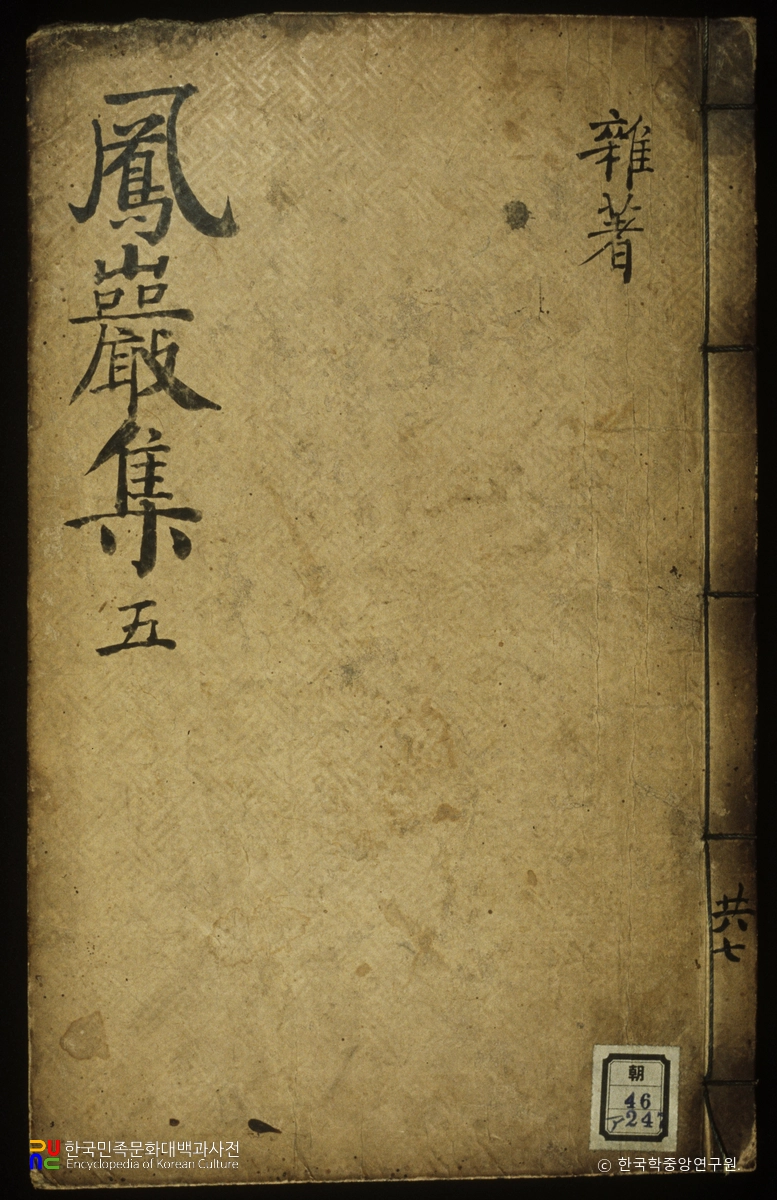 鳳巖集 五
雜著
共七
朝
46
ア247
한국민족문화대백과사전
Encyclopedia of Korean Culture
ⓒ 한국학중앙연구원